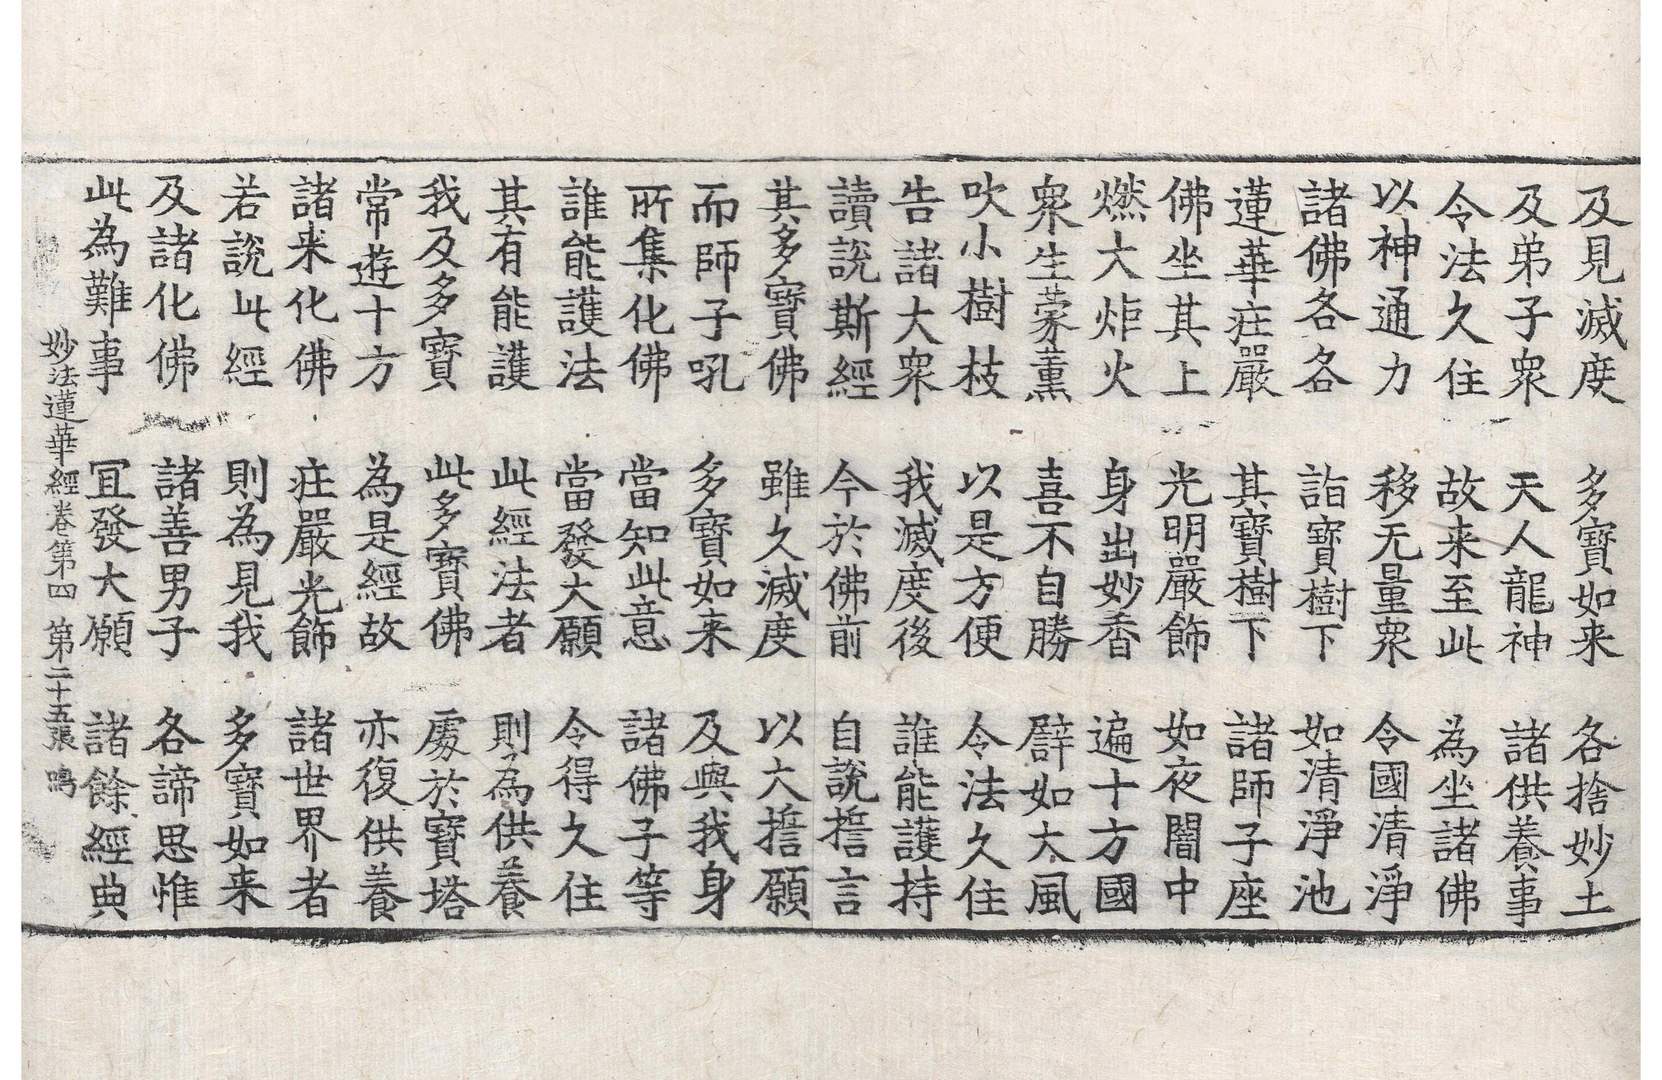 及見滅度 多寶如来 各捨妙土
及弟子衆 天人龍神 諸供養事
令法久住 故来至此 為坐諸佛
以神通力 移无量衆 令國清淨
諸佛各各 詣寶樹下 如清淨池
蓮華㽵嚴 其寶樹下 諸師子座
佛坐其上 光明嚴飾 如夜闇中
燃大炬火 身出妙香 遍十方國
衆生蒙薰 喜不自勝 譬如大風
吹小樹枝 以是方便 令法久住
告諸大衆 我滅度後 誰能護持
讀說斯經 今於佛前 自說誓言
其多寶佛 雖久滅度 以大誓願
而師子吼 多寶如来 及與我身
所集化佛 當知此意 諸佛子等
誰能護法 當發大願 令得久住
其有能護 此經法者 則為供養
我及多寶 此多寶佛 處於寶塔
常遊十方 為是經故 亦復供養
諸来化佛 㽵嚴光飾 諸世界者
若說此經 則為見我 多寶如来
及諸化佛 諸善男子 各諦思惟
此為難事 冝發大願 諸餘經典
妙法蓮華經卷第四 第二十五張 鳴